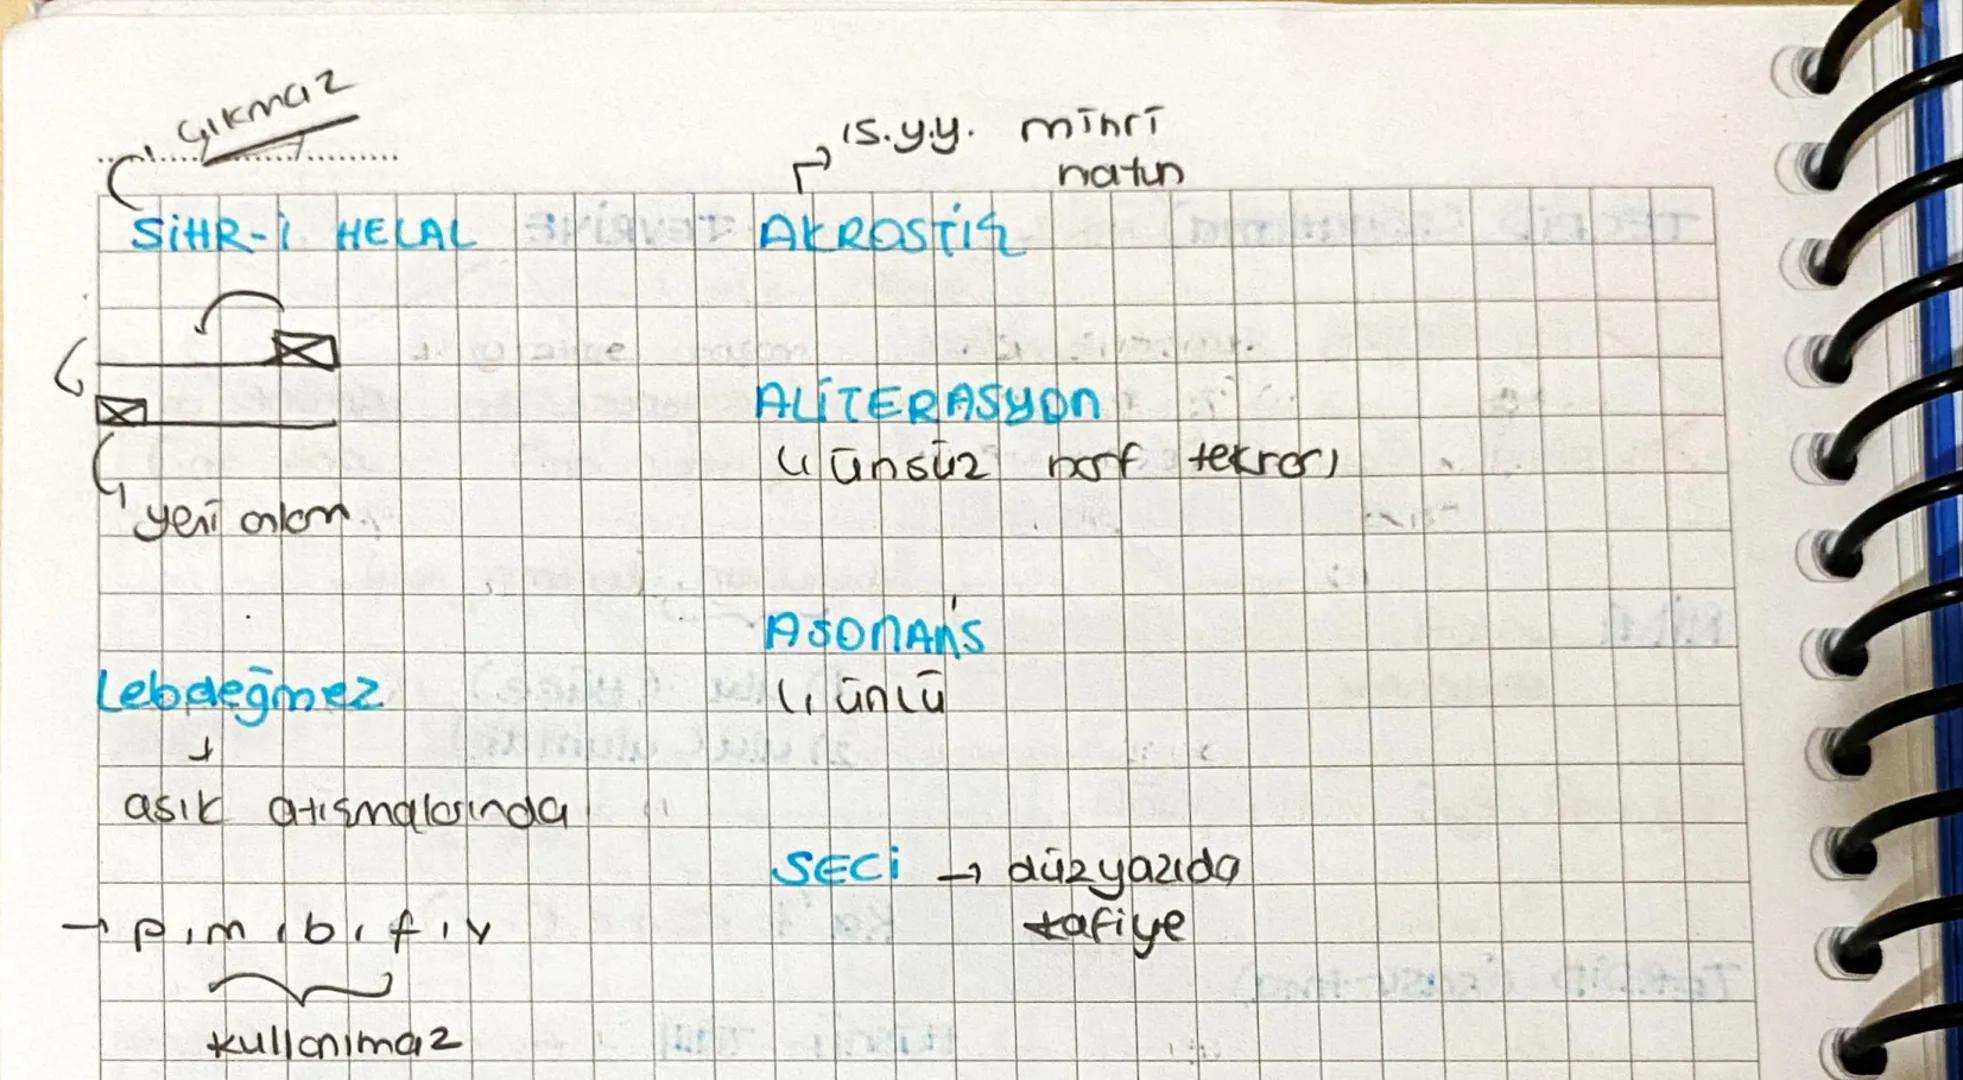 çıkmaz
SİHR-İ HELAL
yeni anlam
Lebdeğmez
asık atışmalarında
→ p, m, b, f, v
kullanılmaz
15.y.y. mihri
hatun
AKROSTİŞ
ALİTERASYON
ünsüz harf tekrarı
ASONANS
ünlü
SECİ → düzyazıda
kafiye